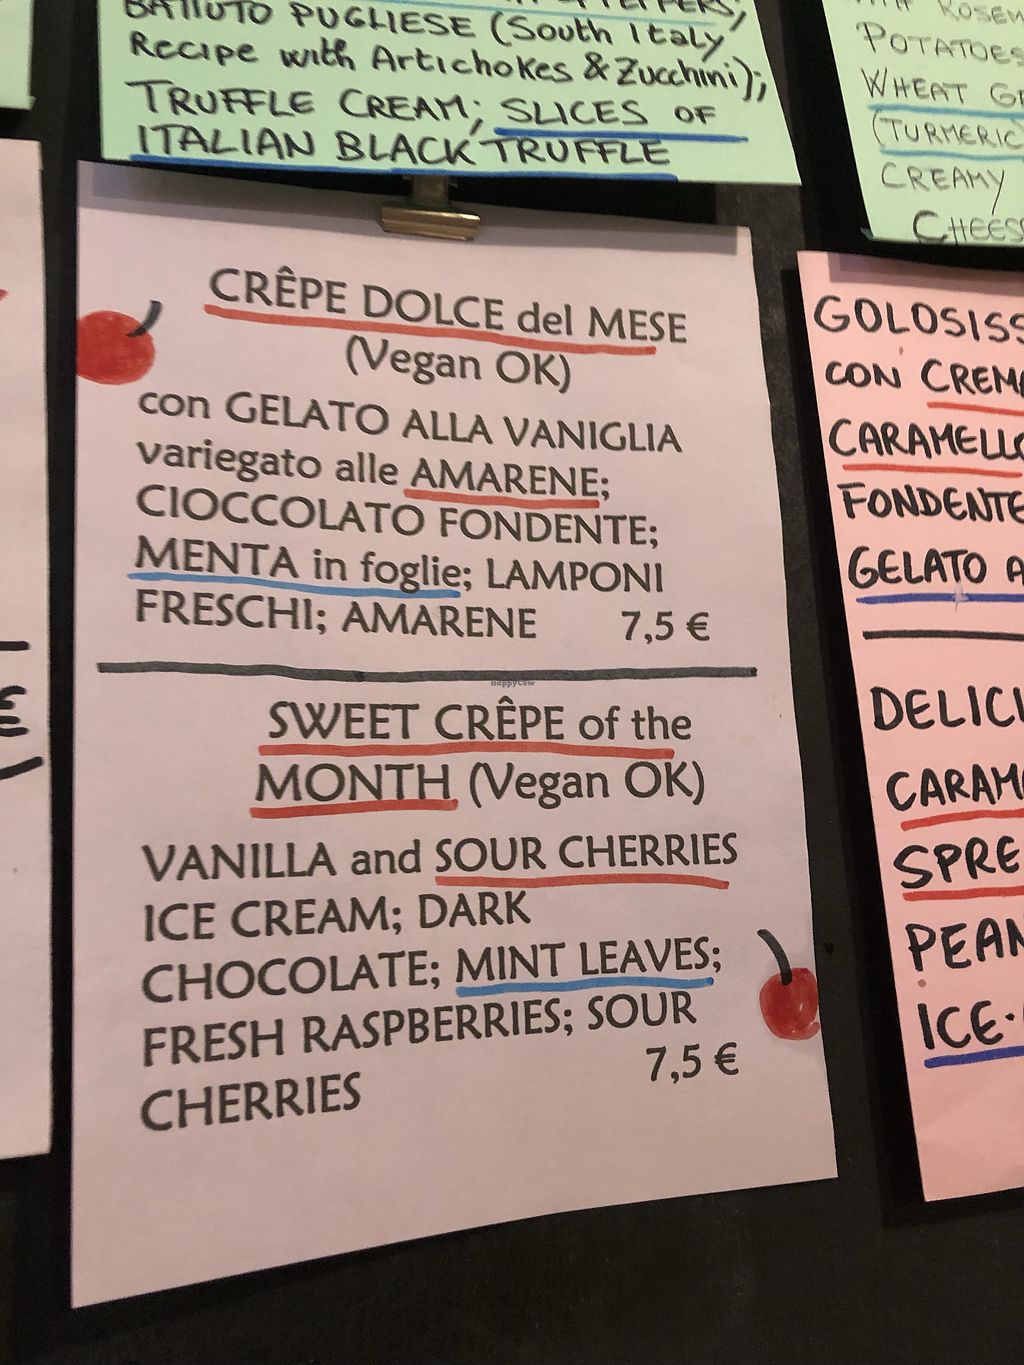 BATTUTO PUGLIESE (South Italy
Recipe with Artichokes & Zucchini);
TRUFFLE CREAM; SLICES OF
ITALIAN BLACK TRUFFLE
ROSEM
POTATOES
WHEAT GE
(TURMERIC
CREAMY
CHEES
CRÊPE DOLCE del MESE
(Vegan OK)
con GELATO ALLA VANIGLIA
variegato alle AMARENE;
CIOCCOLATO FONDENTE;
MENTA in foglie; LAMPONI
FRESCHI; AMARENE 7,5 €
HappyCow
SWEET CRÊPE of the
MONTH (Vegan OK)
VANILLA and SOUR CHERRIES
ICE CREAM; DARK
CHOCOLATE; MINT LEAVES;
FRESH RASPBERRIES; SOUR
CHERRIES 7,5 €
€
GOLOSISS
CON CREMA
CARAMELLO
FONDENTE
GELATO A
DELICI
CARAM
SPRE
PEAN
ICE-